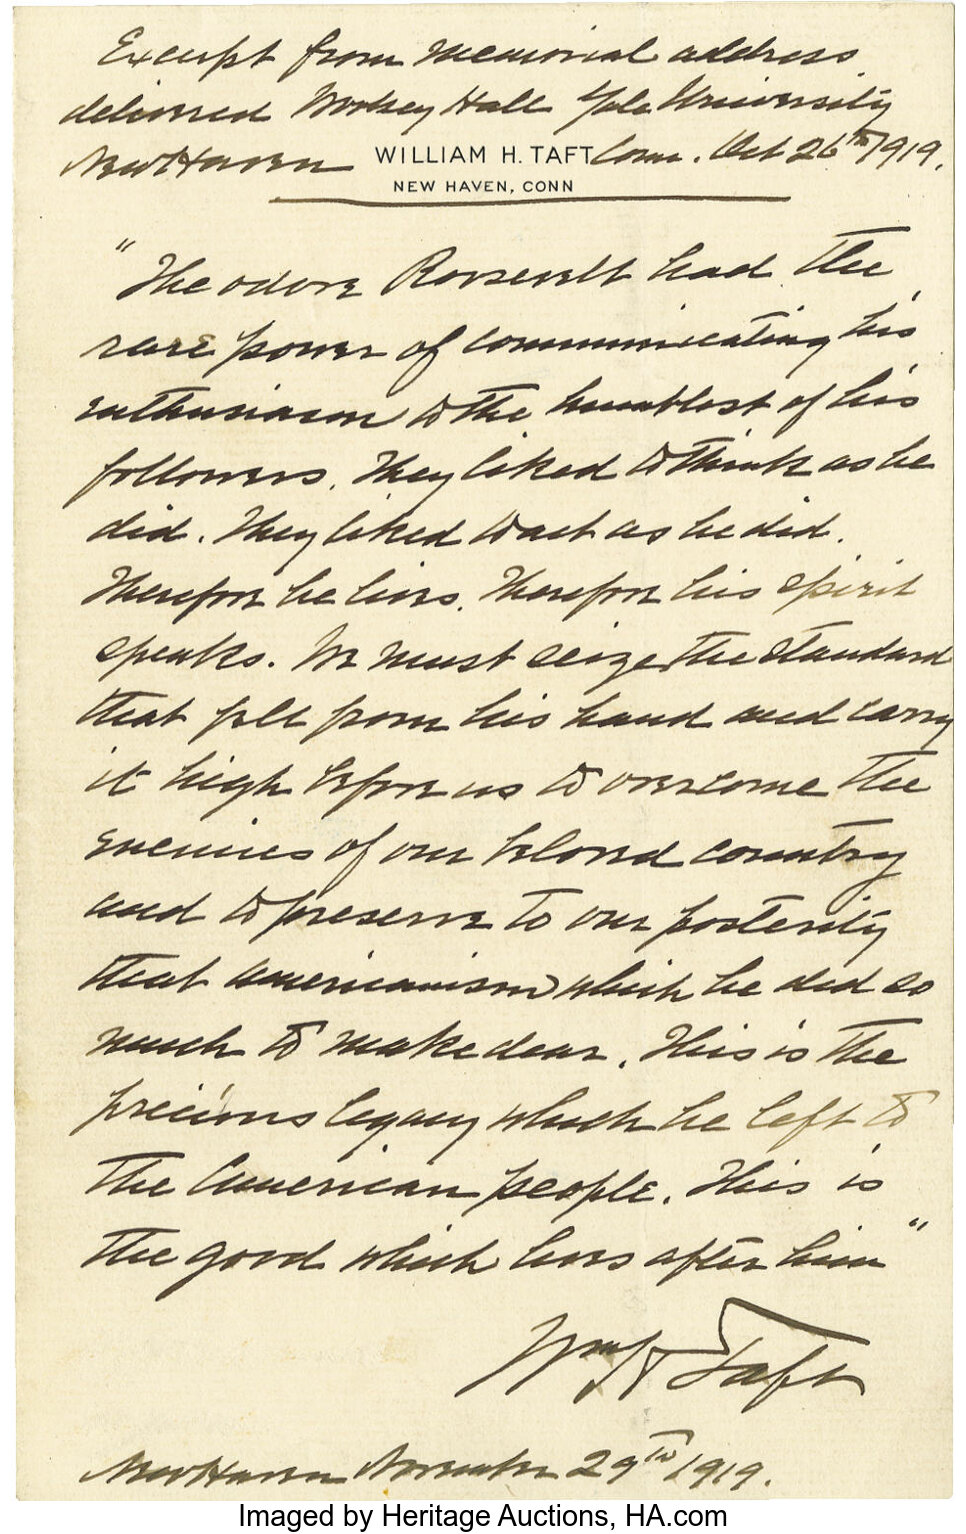 Excerpt from memorial address
delivered Woolsey Hall Yale University
New Haven Conn. Oct 26th 1919.
WILLIAM H. TAFT
NEW HAVEN, CONN
"Theodore Roosevelt had the
rare power of communicating his
enthusiasm to the humblest of his
followers. They liked to think as he
did. They liked to act as he did.
Therefore he lives. Therefore his spirit
speaks. We must seize the standard
that fell from his hand and carry
it high before us to overcome the
enemies of our beloved country
and to preserve to our posterity
that Americanism which he did so
much to make dear. This is the
precious legacy which he left to
the American people. This is
the good which lives after him"
Wm H Taft
New Haven November 29th 1919.
Imaged by Heritage Auctions, HA.com